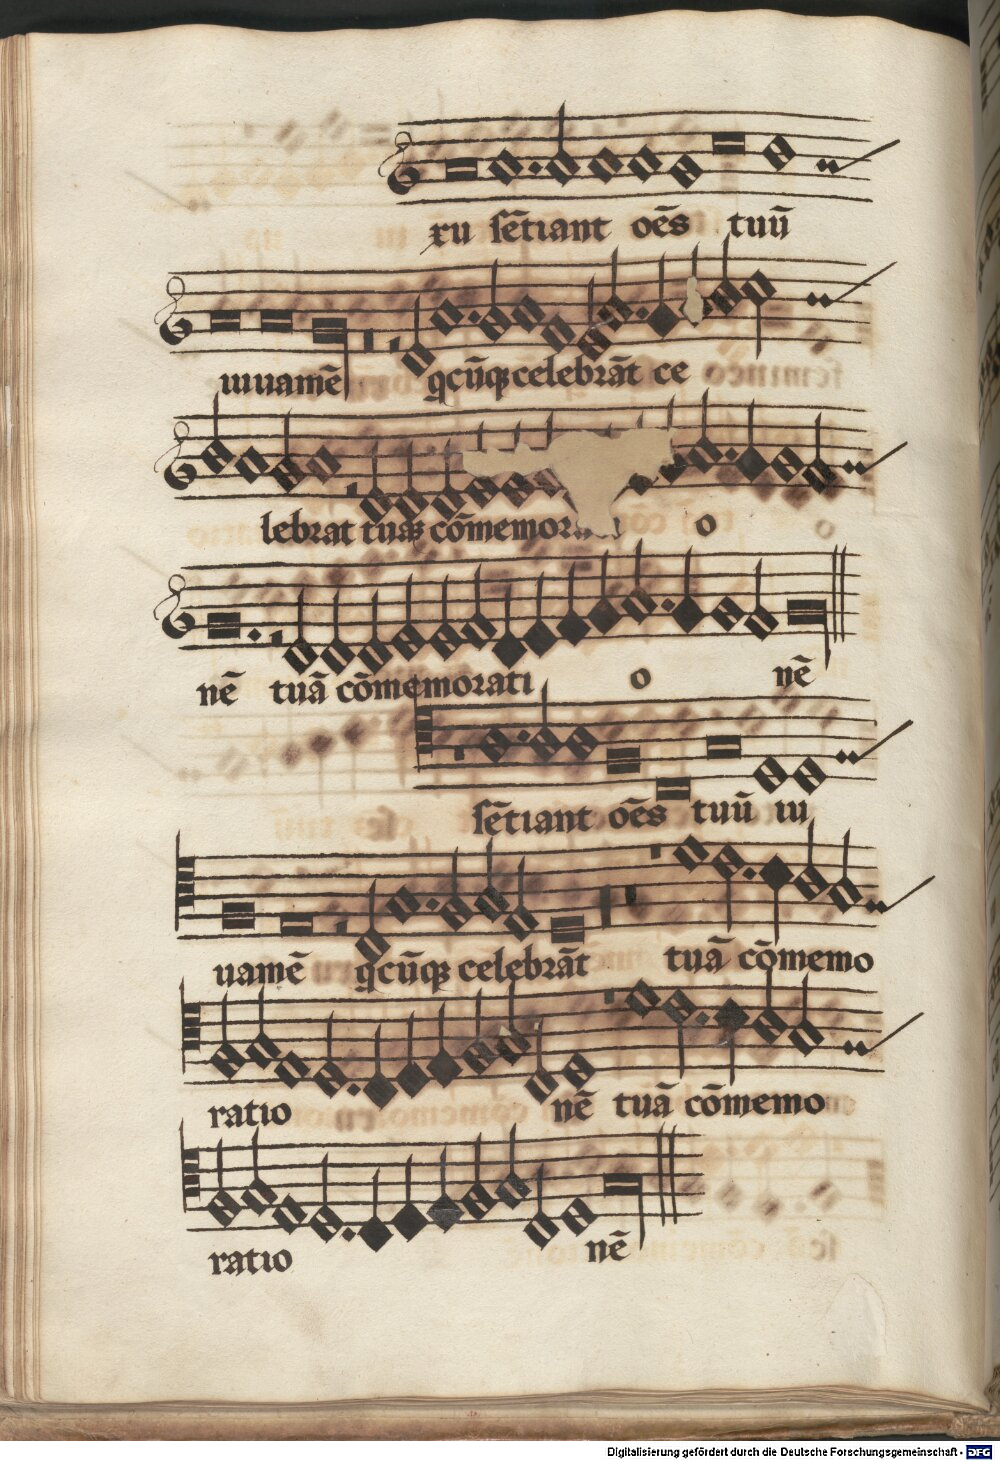 xu sētiant oēs tuū
iuuamē qcūqꝫ celebrāt ce
lebrat tuā cōmemor o
nē tuā cōmemorati o nē
sētiant oēs tuū iu
uamē qcūqꝫ celebrāt tuā cōmemo
ratio nē tuā cōmemo
ratio nē
Digitalisierung gefördert durch die Deutsche Forschungsgemeinschaft - DFG